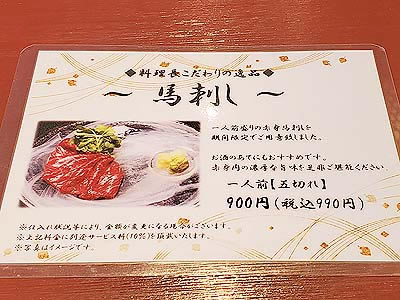 ◆料理長こだわりの逸品◆
～馬刺し～
一人前盛りの赤身馬刺しを
期間限定でご用意致しました。
お酒のあてにもおすすめです。
赤身肉の濃厚な旨味を是非ご堪能ください。
一人前【五切れ】
900円(税込990円)
※仕入れ状況等により、金額が変更になる場合がございます。
※上記料金に別途サービス料(10%)を頂戴いたします。
※写真はイメージです。